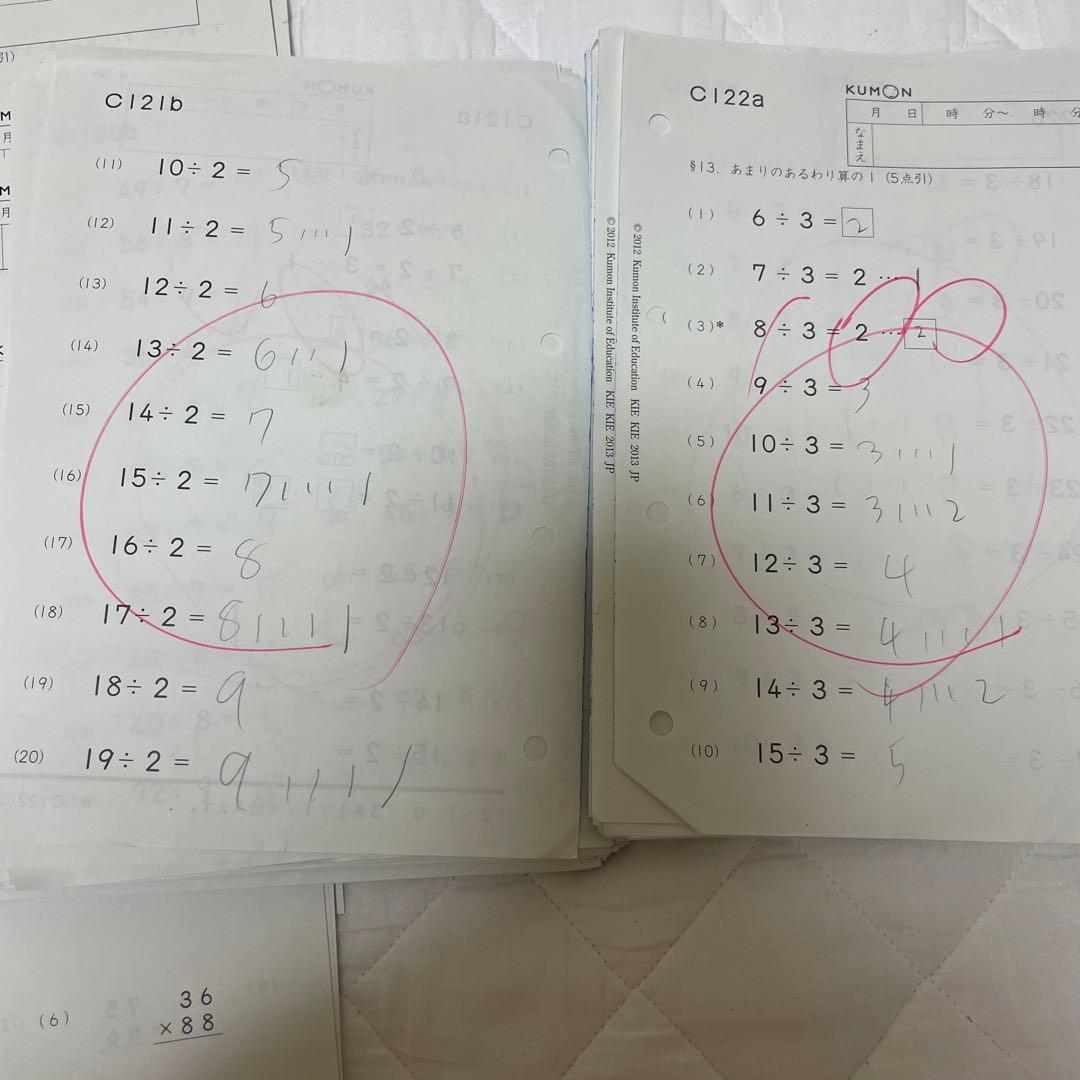 引)
M
月
M
月
C121b
(11) 10÷2= 5
(12) 11÷2= 5…1
(13) 12÷2= 6
(14) 13÷2= 6…1
(15) 14÷2= 7
(16) 15÷2= 7…1
(17) 16÷2= 8
(18) 17÷2= 8…1
(19) 18÷2= 9
(20) 19÷2= 9…1
(6) 36
×88
© 2012 Kumon Institute of Education KIE KIE 2013 JP
© 2012 Kumon Institute of Education KIE KIE 2013 JP
C122a
KUMON
月 日 時 分〜 時 分
なまえ
§13. あまりのあるわり算の1 (5点引)
(1) 6÷3=2
(2) 7÷3=2…1
(3)* 8÷3=2…2
(4) 9÷3=3
(5) 10÷3=3…1
(6) 11÷3=3…2
(7) 12÷3= 4
(8) 13÷3= 4…1
(9) 14÷3= 4…2
(10) 15÷3= 5